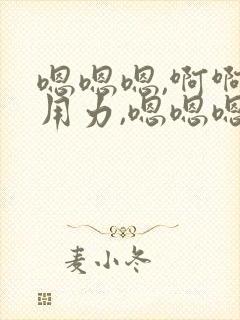 嗯嗯嗯,啊啊
用力,嗯嗯嗯
麦小冬